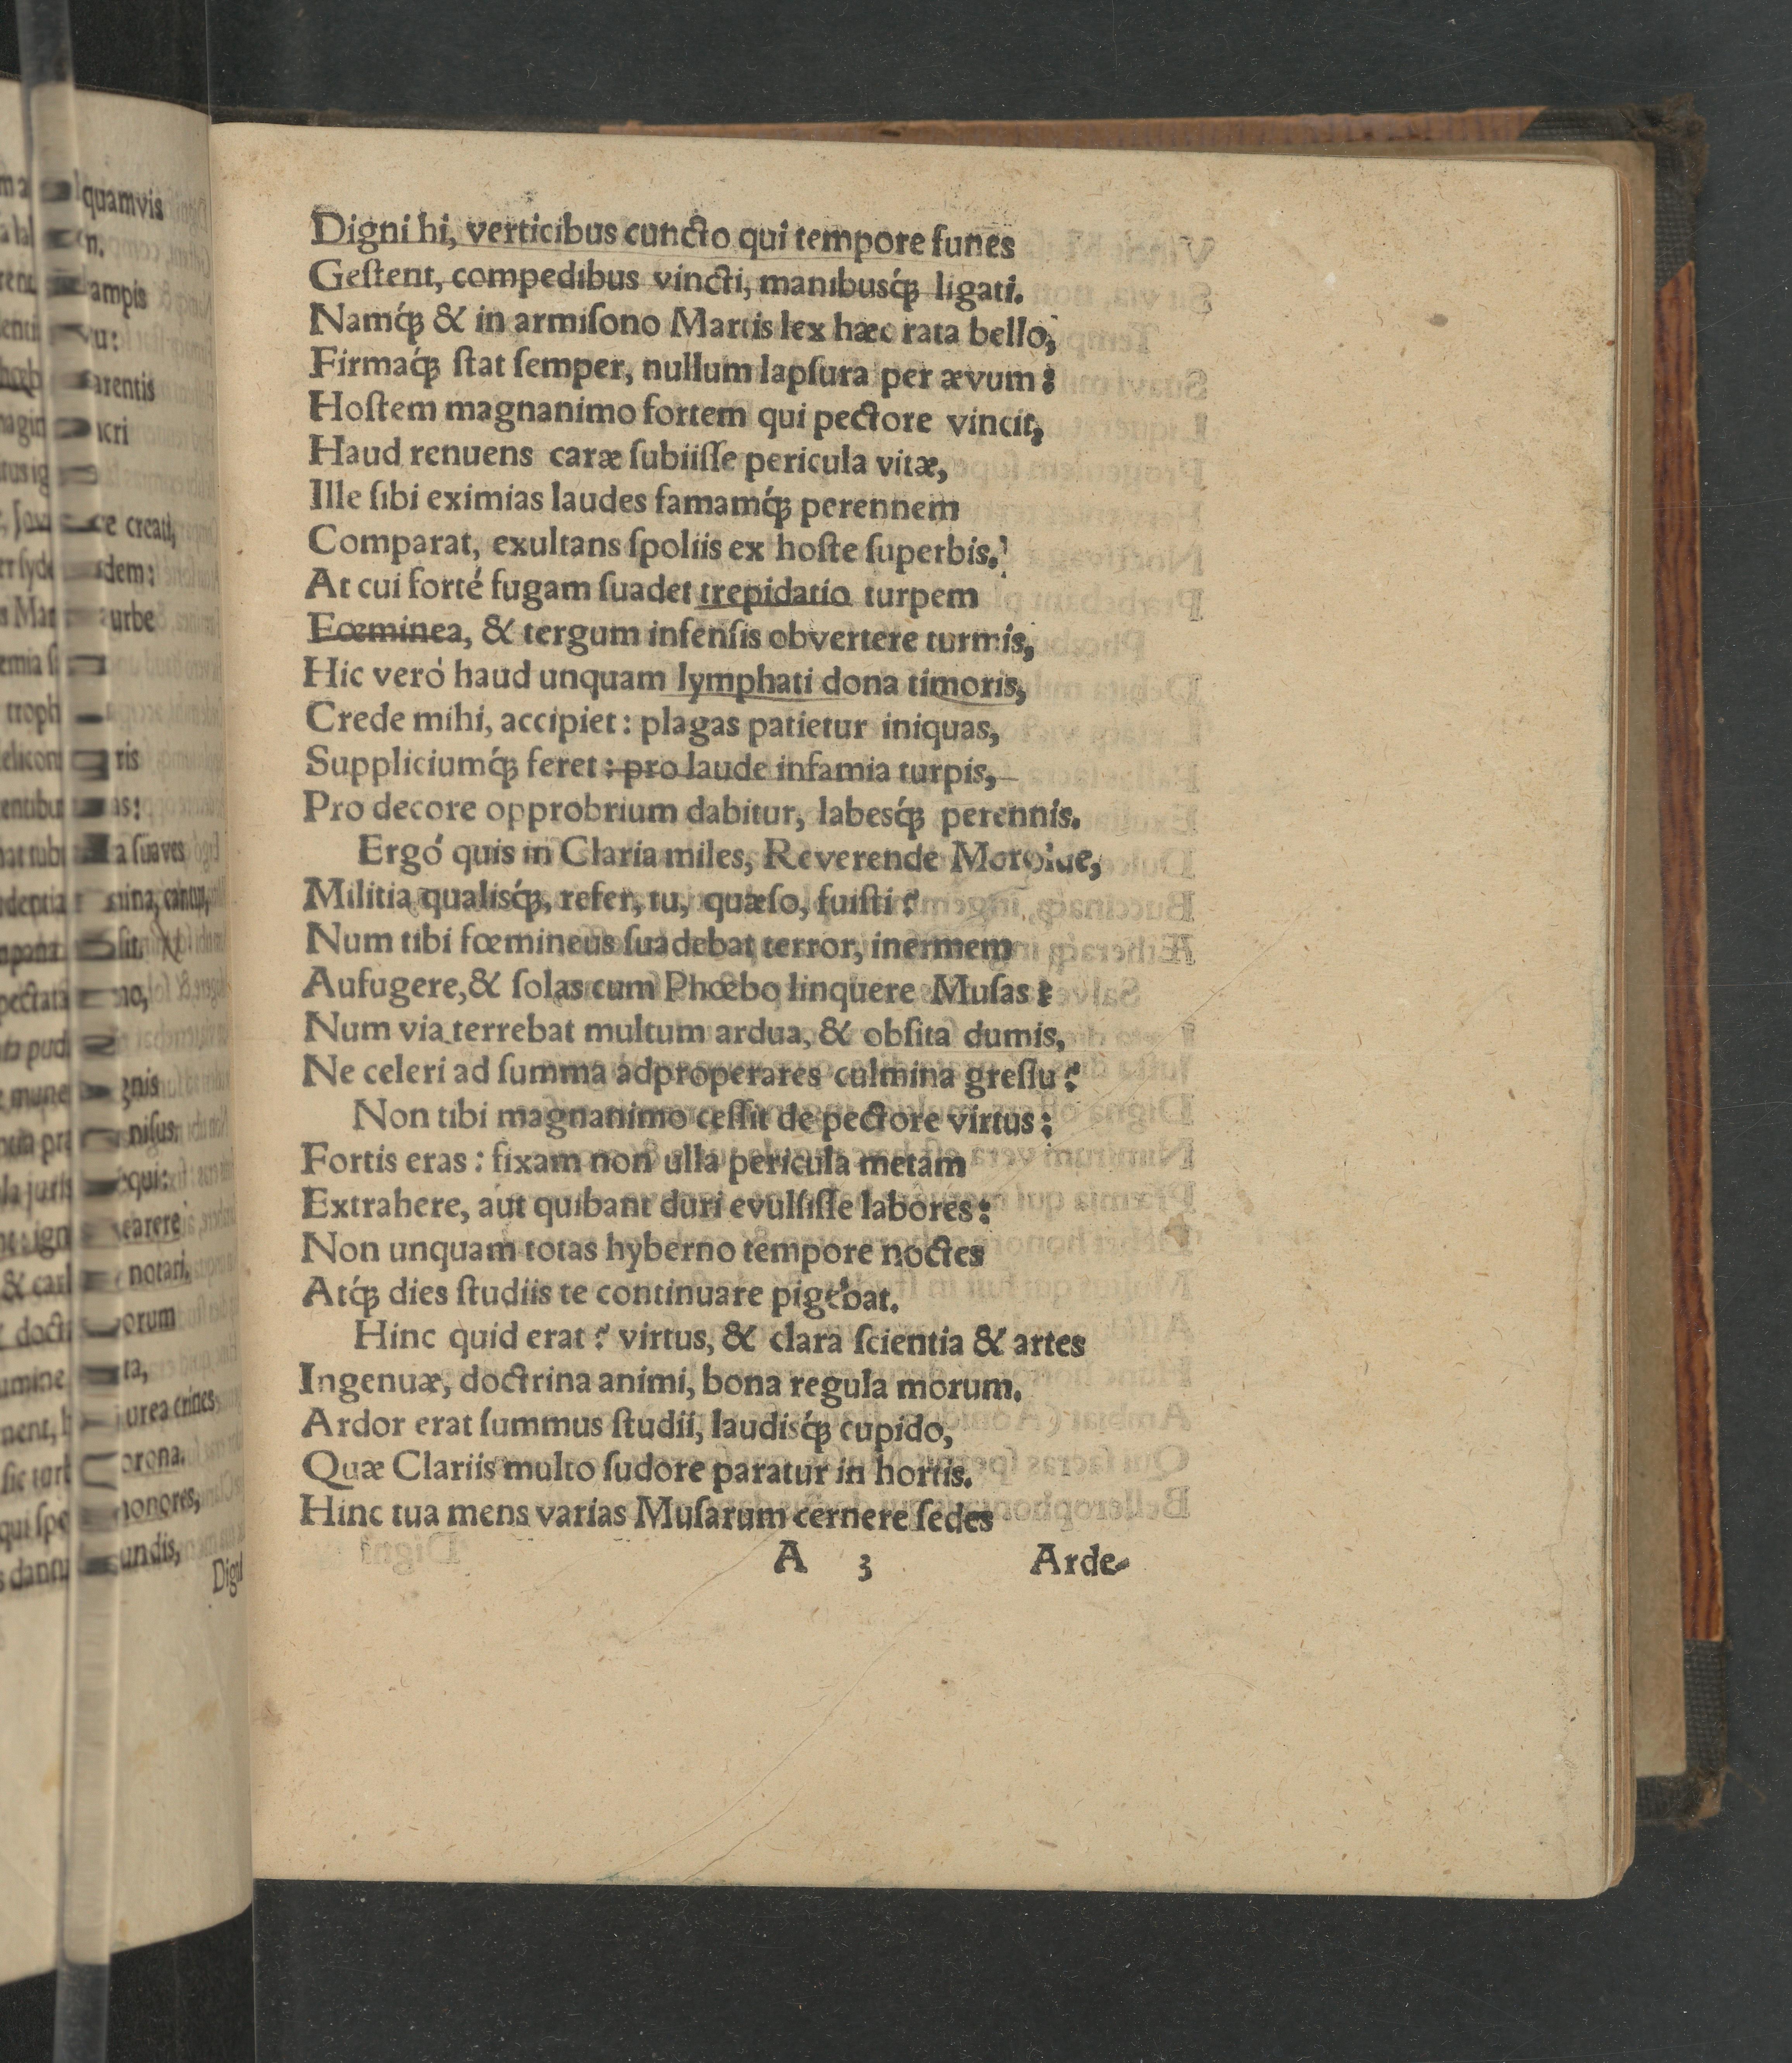 Digni hi, verticibus cuncto qui tempore funes
Geſtent, compedibus vincti, manibusq́; ligati.
Namq́; & in armiſono Martis lex hæc rata bello,
Firmaq́; ſtat ſemper, nullum lapſura per ævum:
Hoſtem magnanimo fortem qui pectore vincit,
Haud renuens caræ ſubiiſſe pericula vitæ,
Ille ſibi eximias laudes famamq́; perennem
Comparat, exultans ſpoliis ex hoſte ſuperbis.
At cui forté fugam ſuadet trepidatio turpem
Fœminea, & tergum infenſis obvertere turmis,
Hic veró haud unquam lymphati dona timoris,
Crede mihi, accipiet: plagas patietur iniquas,
Suppliciumq́; feret: pro laude infamia turpis,
Pro decore opprobrium dabitur, labesq́; perennis.
Ergó quis in Claria miles, Reverende
Militia qualisq́;, refer, tu, quæſo, fuiſti?
Num tibi fœmineus ſuadebat terror, inermem
Aufugere, & ſolas cum Phœbo linquere Muſas?
Num via terrebat multum ardua, & obſita dumis,
Ne celeri ad ſumma adproperares culmina greſſu?
Non tibi magnanimo ceſſit de pectore virtus:
Fortis eras: fixam non ulla pericula metam
Extrahere, aut quibant duri evulſiſſe labores:
Non unquam totas hyberno tempore noctes
Atq́; dies ſtudiis te continuare pigebat.
Hinc quid erat? virtus, & clara ſcientia & artes
Ingenuæ, doctrina animi, bona regula morum.
Ardor erat ſummus ſtudii, laudisq́; cupido,
Quæ Clariis multo ſudore paratur in hortis.
Hinc tua mens varias Muſarum cernere ſedes
A 3 Arde-